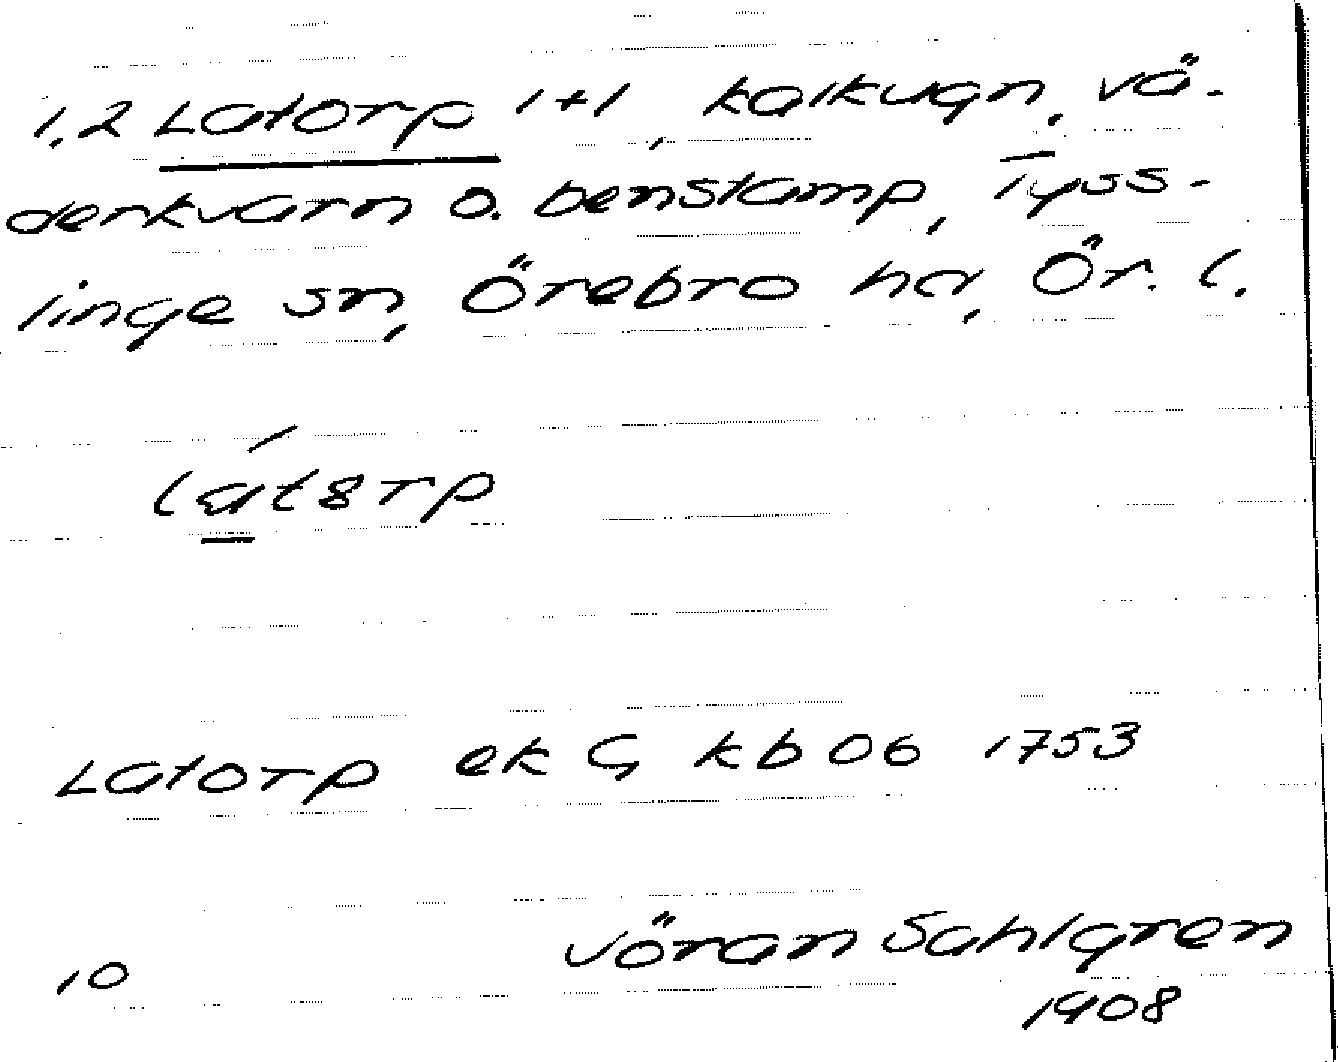 1,2 Latorp 1+1, kalkugn, vä-
derkvarn o. benstamp, Tyss-
linge sn, Örebro hd, Ör. l.
latorp
Latorp ek G kb 06 1753
10 Jöran Sahlgren
1908